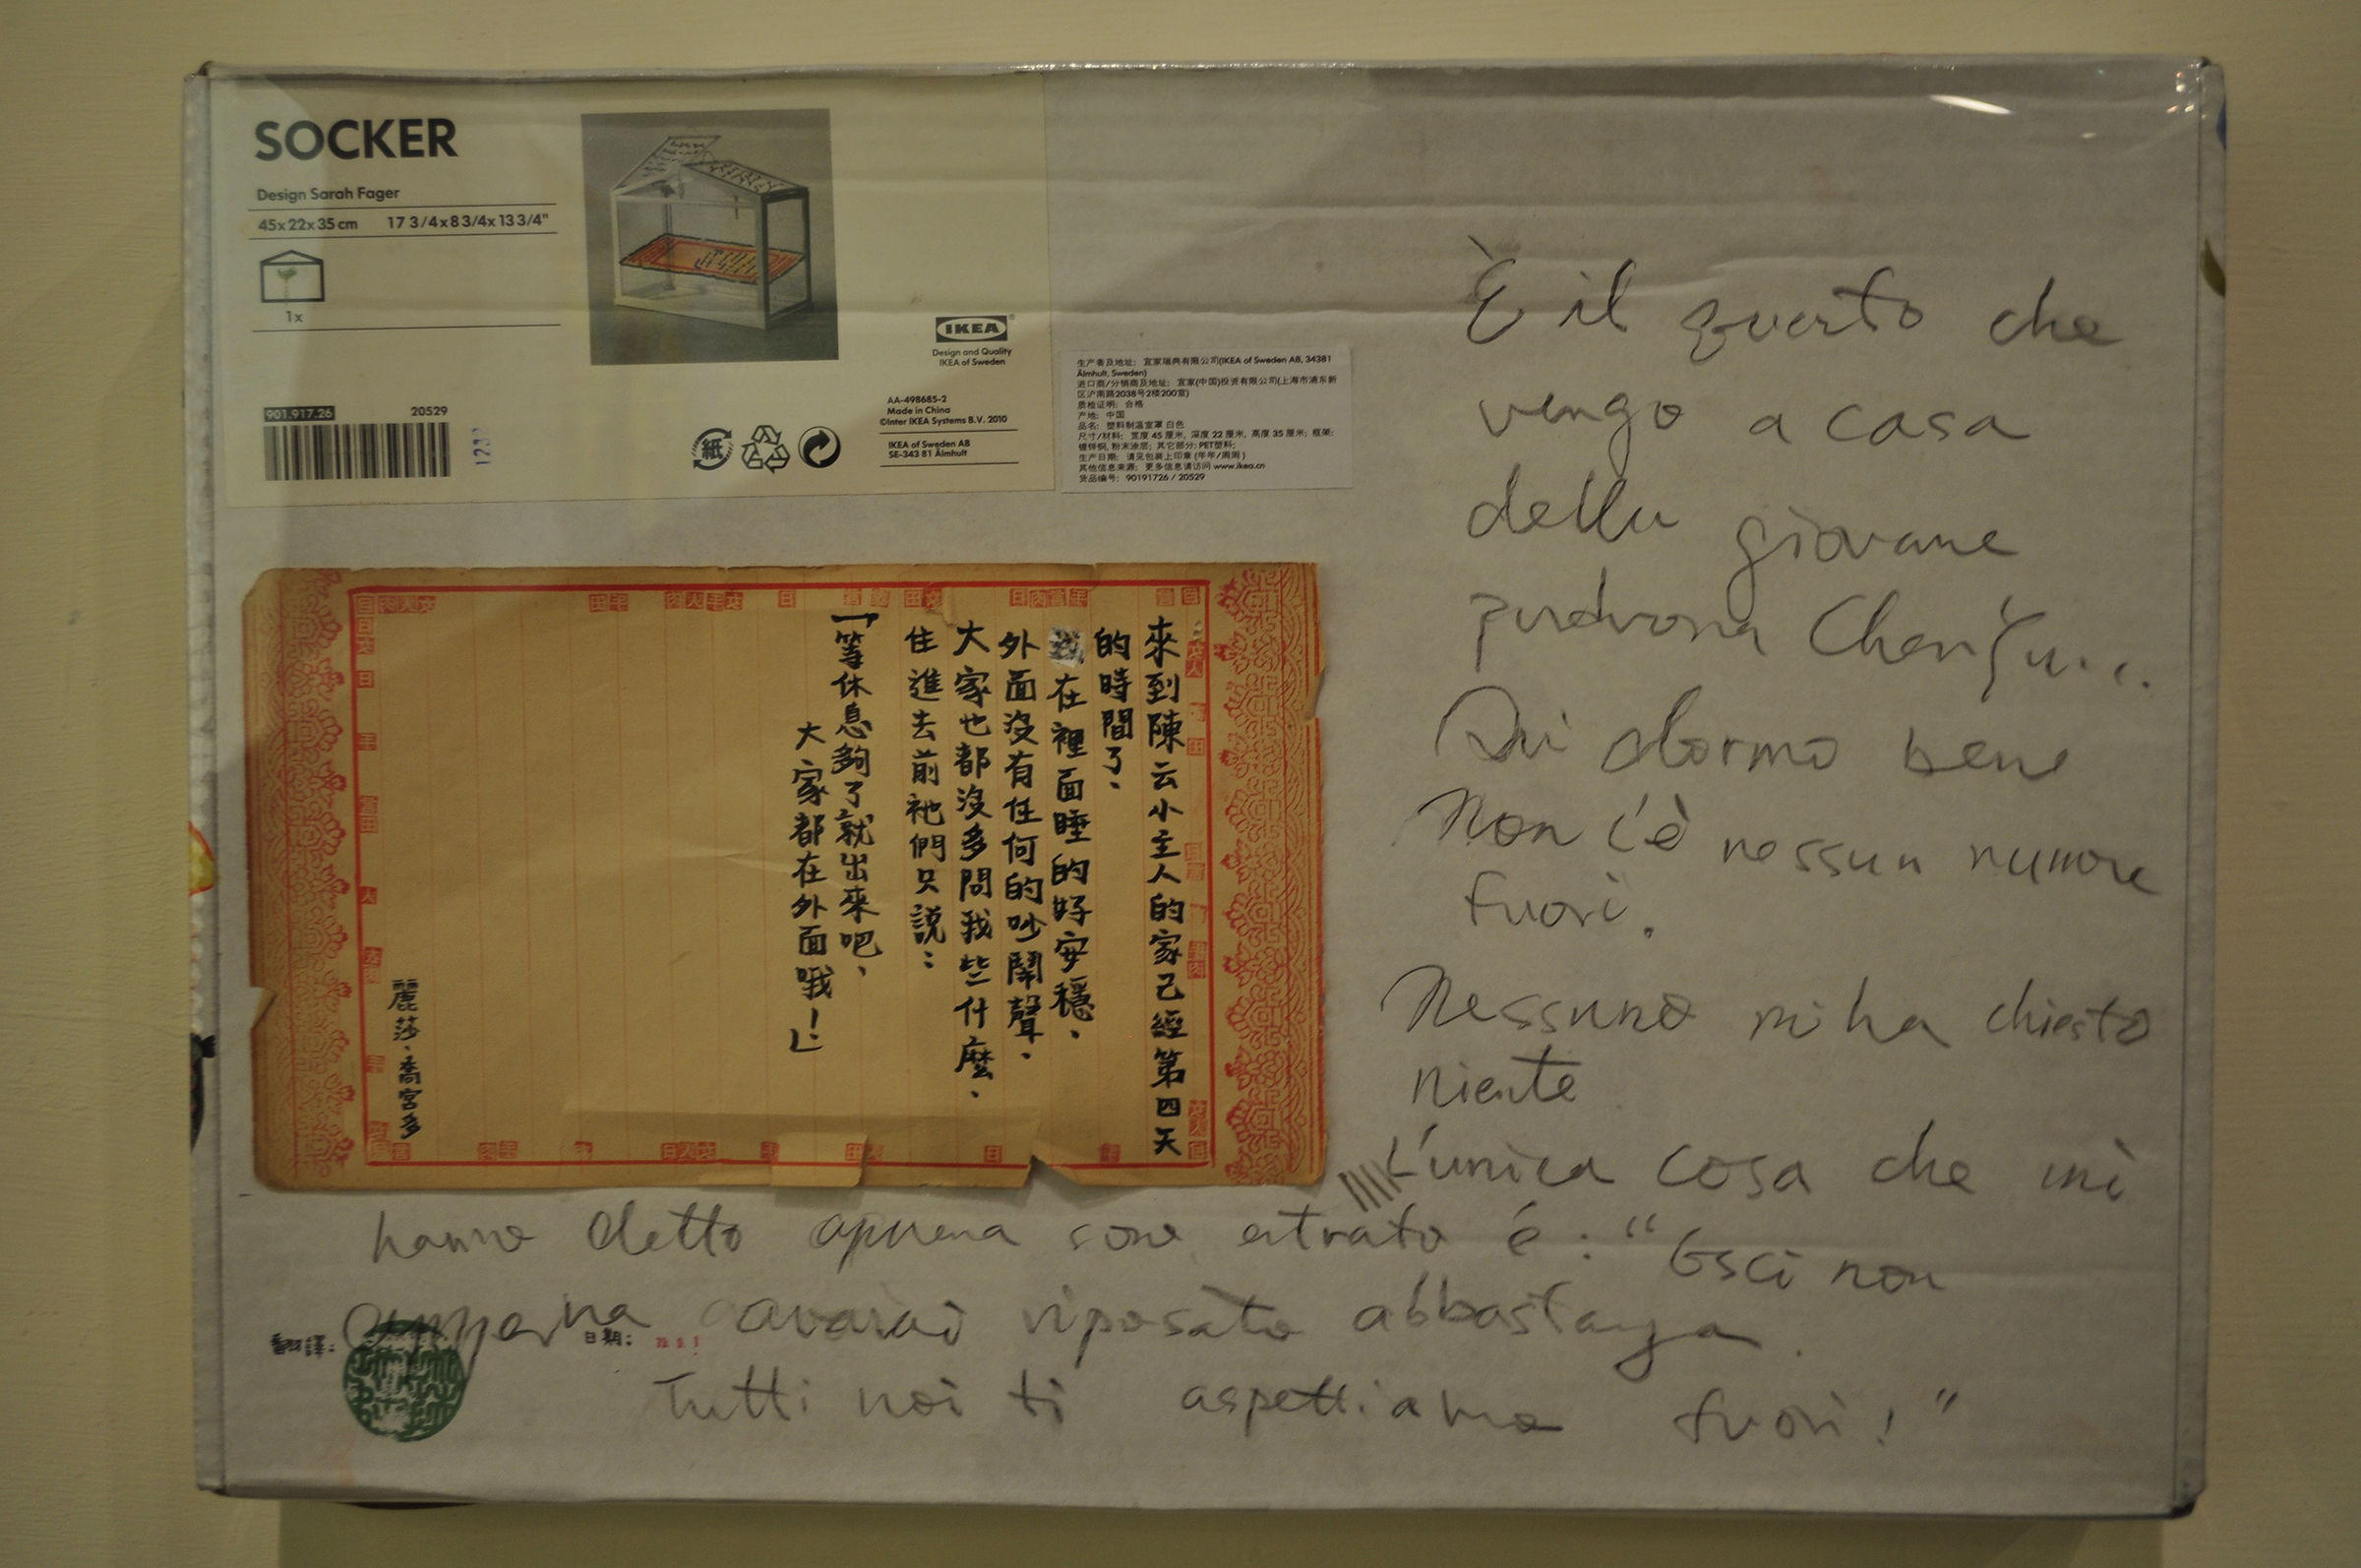 SOCKER
Design Sarah Fager
45x22x35 cm 17 3/4x8 3/4x13 3/4"
1x
IKEA
Design and Quality
IKEA of Sweden
901.917.26 20529
AA-498685-2
Made in China
©Inter IKEA Systems B.V. 2010
IKEA of Sweden AB
SE-343 81 Älmhult
紙
生产者及地址: 宜家瑞典有限公司(IKEA of Sweden AB, 34381
Älmhult, Sweden)
进口商/分销商及地址: 宜家(中国)投资有限公司(上海市浦东新
区沪南路2038号2楼200室)
质检证明: 合格
产地: 中国
品名: 塑料制温室罩 白色
尺寸/材料: 宽度 45 厘米, 深度 22 厘米, 高度 35 厘米; 框架:
镀锌钢, 粉末涂层; 其它部分: PET塑料;
生产日期: 请见包装上印章 (年年/周周)
其他信息来源: 更多信息请访问 www.ikea.cn
货品编号: 90191726 / 20529
來到陳云小主人的家己經第四天
的時間了、
在裡面睡的好安穩、
外面沒有任何的吵鬧聲、
大家也都沒多問我些什麼、
住進去前祂們只說：
「等休息夠了就出來吧、
大家都在外面哦！」
麗莎·喬宮多
È il quarto che
vengo a casa
della giovane
padrona Chen Yu...
Qui dormo bene
Non c'è nessun rumore
fuori.
Nessuno mi ha chiesto
niente
L'unica cosa che mi
hanno detto appena sono entrato è: "Esci non
appena avarai riposato abbastanza.
Tutti noi ti aspettiamo fuori!"
翻譯: 日期: